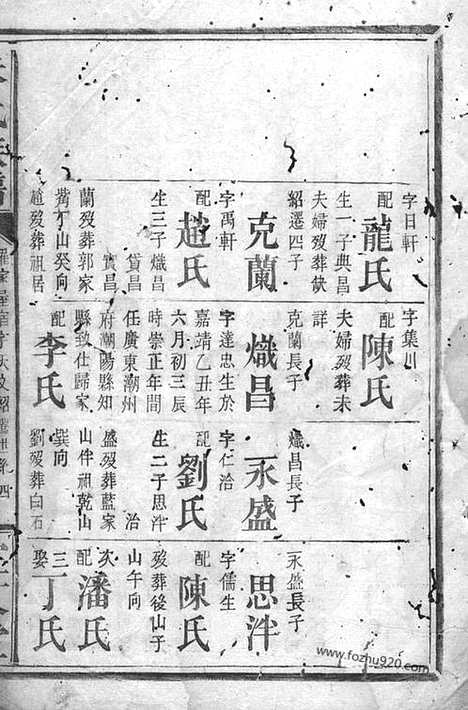 字日軒
配龍氏
生一子典昌
夫婦歿葬缺
紹遷四子
克蘭
字禹軒
配趙氏
生三子熾昌
賛昌
實昌
蘭歿葬郭家
嘴丁山癸向
趙歿葬祖居
字集川
配陳氏
夫婦歿葬未
詳
克蘭長子
熾昌
字達忠生於
嘉靖乙丑年
六月初三辰
時崇正年間
任廣東潮州
府潮陽縣知
縣致仕歸家
配李氏
熾昌長子
永盛
字仁治
配劉氏
生二子思泮
治
盛歿葬藍家
山伴祖乾山
巽向
劉歿葬白石
永盛長子
思泮
字儒生
配陳氏
歿葬後山子
山午向
次配潘氏
三娶丁氏
www.fozhu920.com